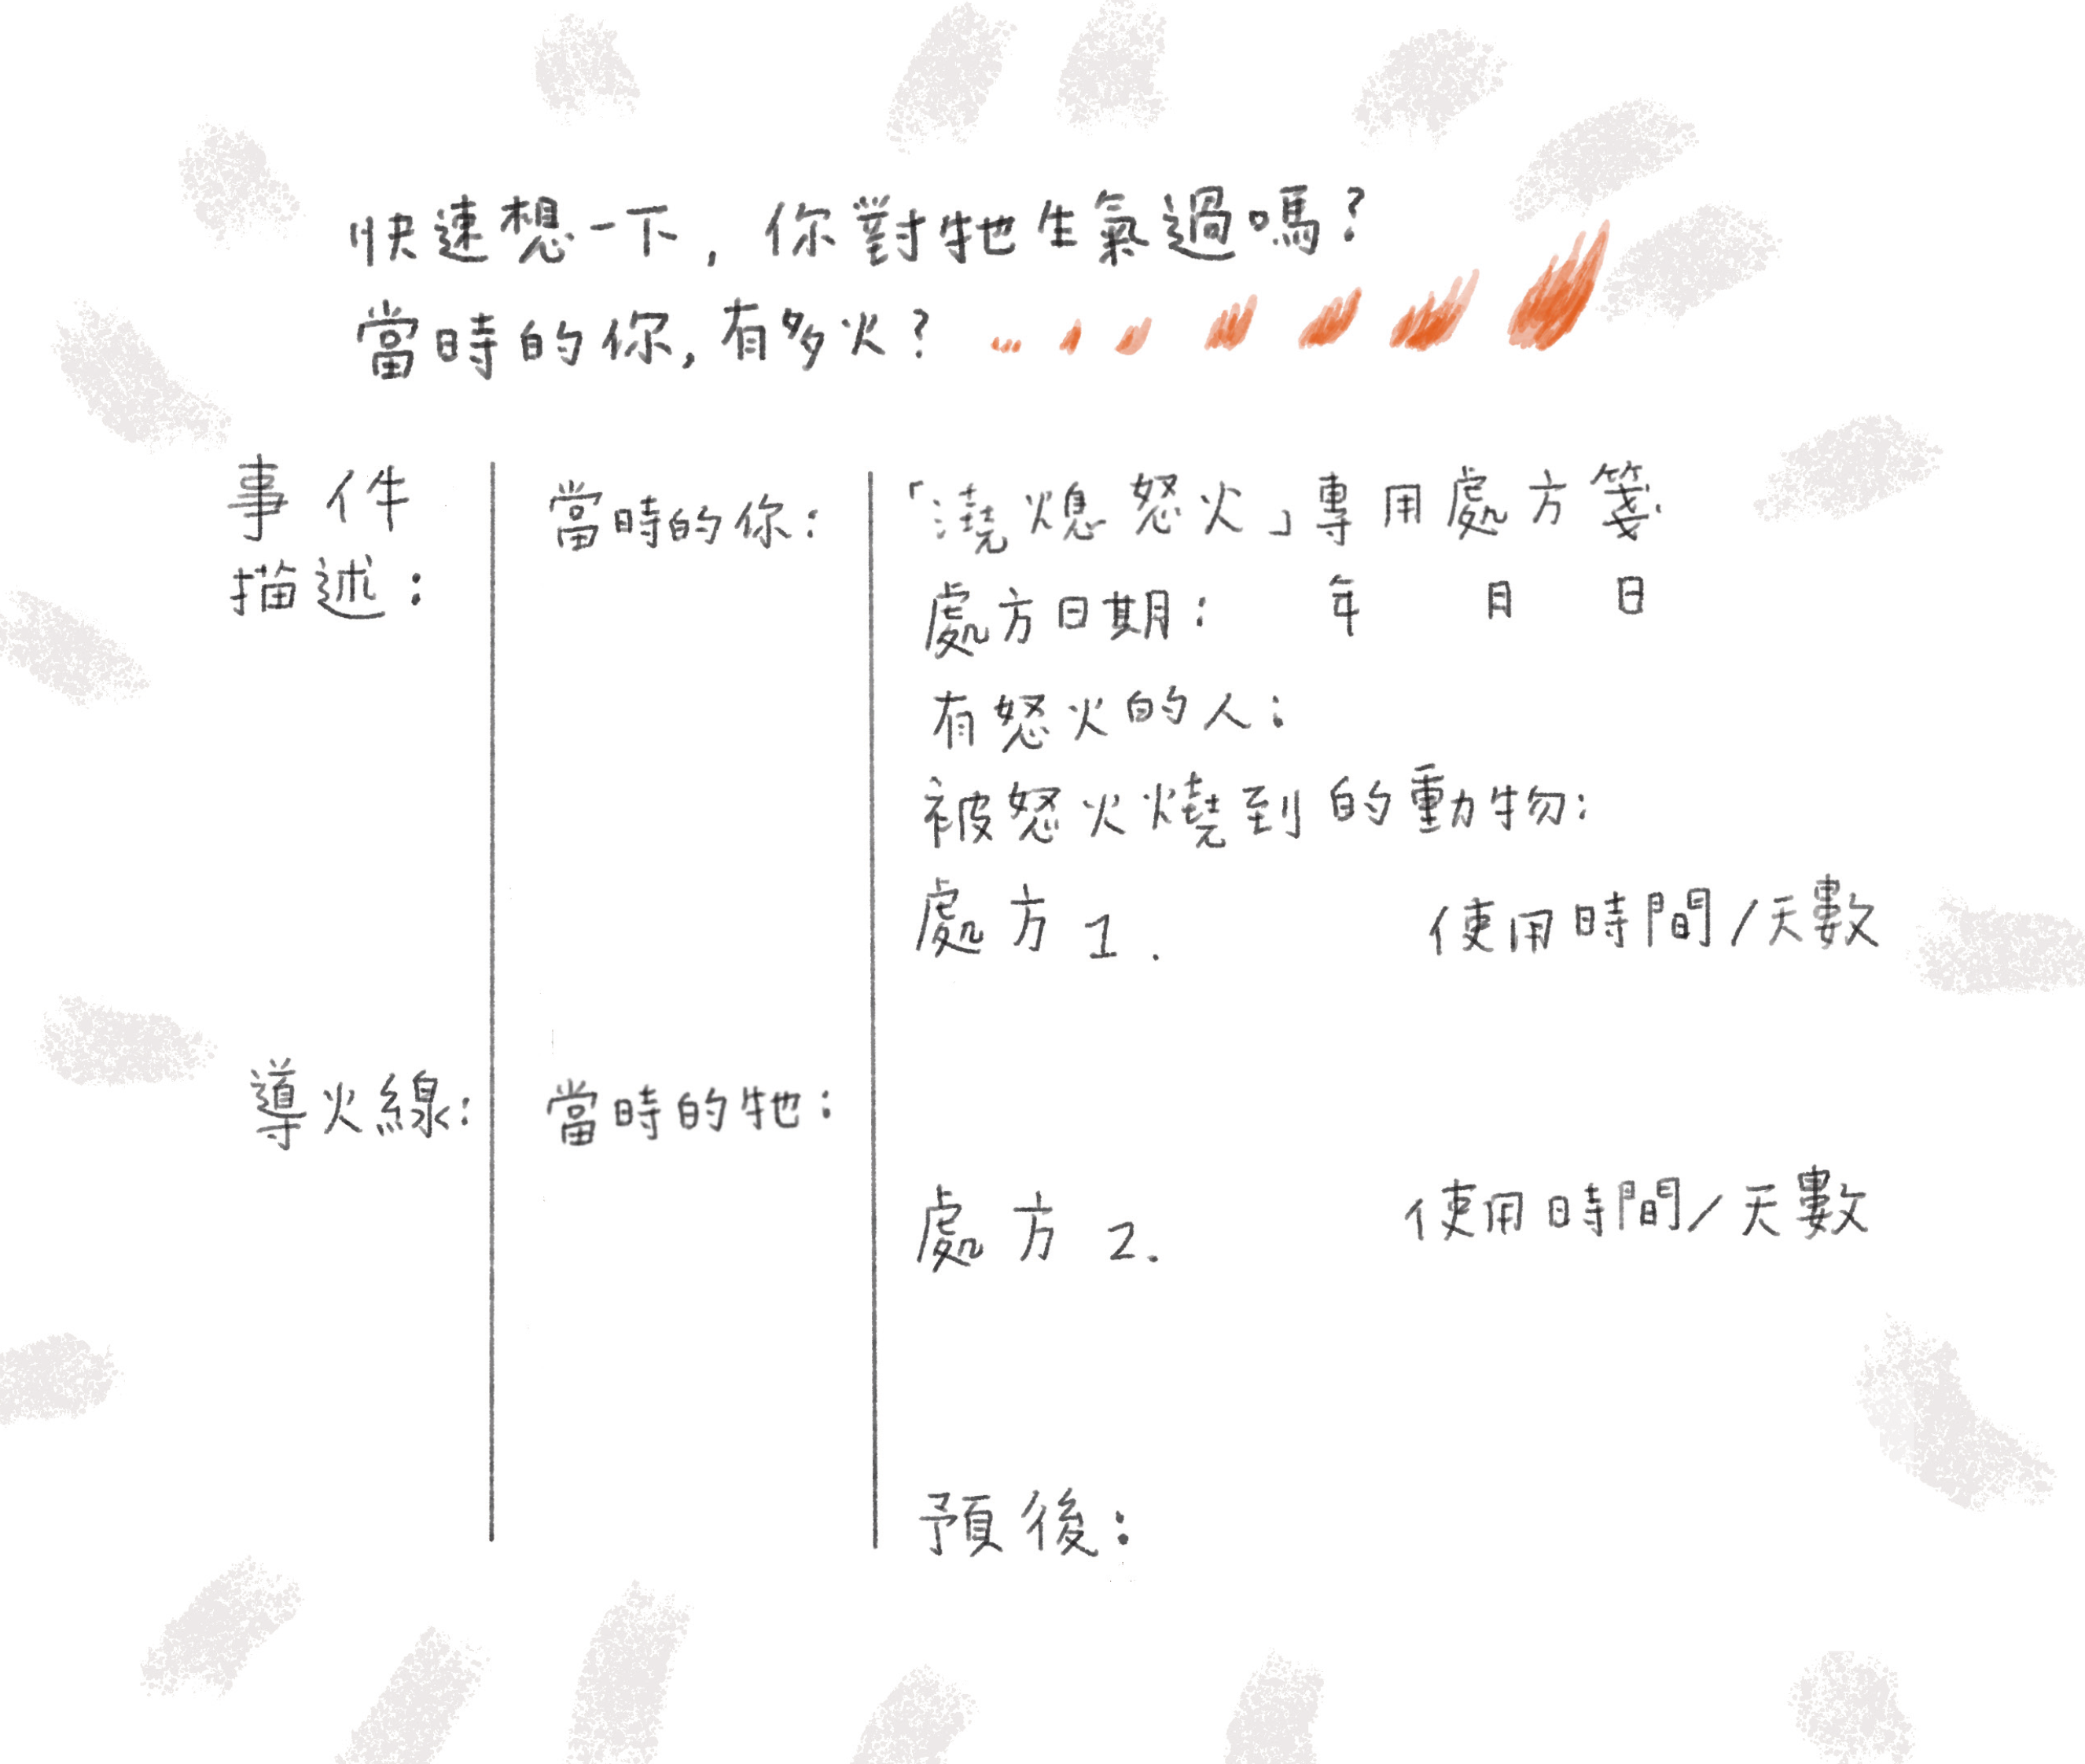 快速想一下，你對牠生氣過嗎？
當時的你，有多火？
事件
描述：
導火線：
當時的你：
當時的牠：
「澆熄怒火」專用處方箋
處方日期：　年　月　日
有怒火的人：
被怒火燒到的動物：
處方 1.　使用時間/天數
處方 2.　使用時間/天數
預後：